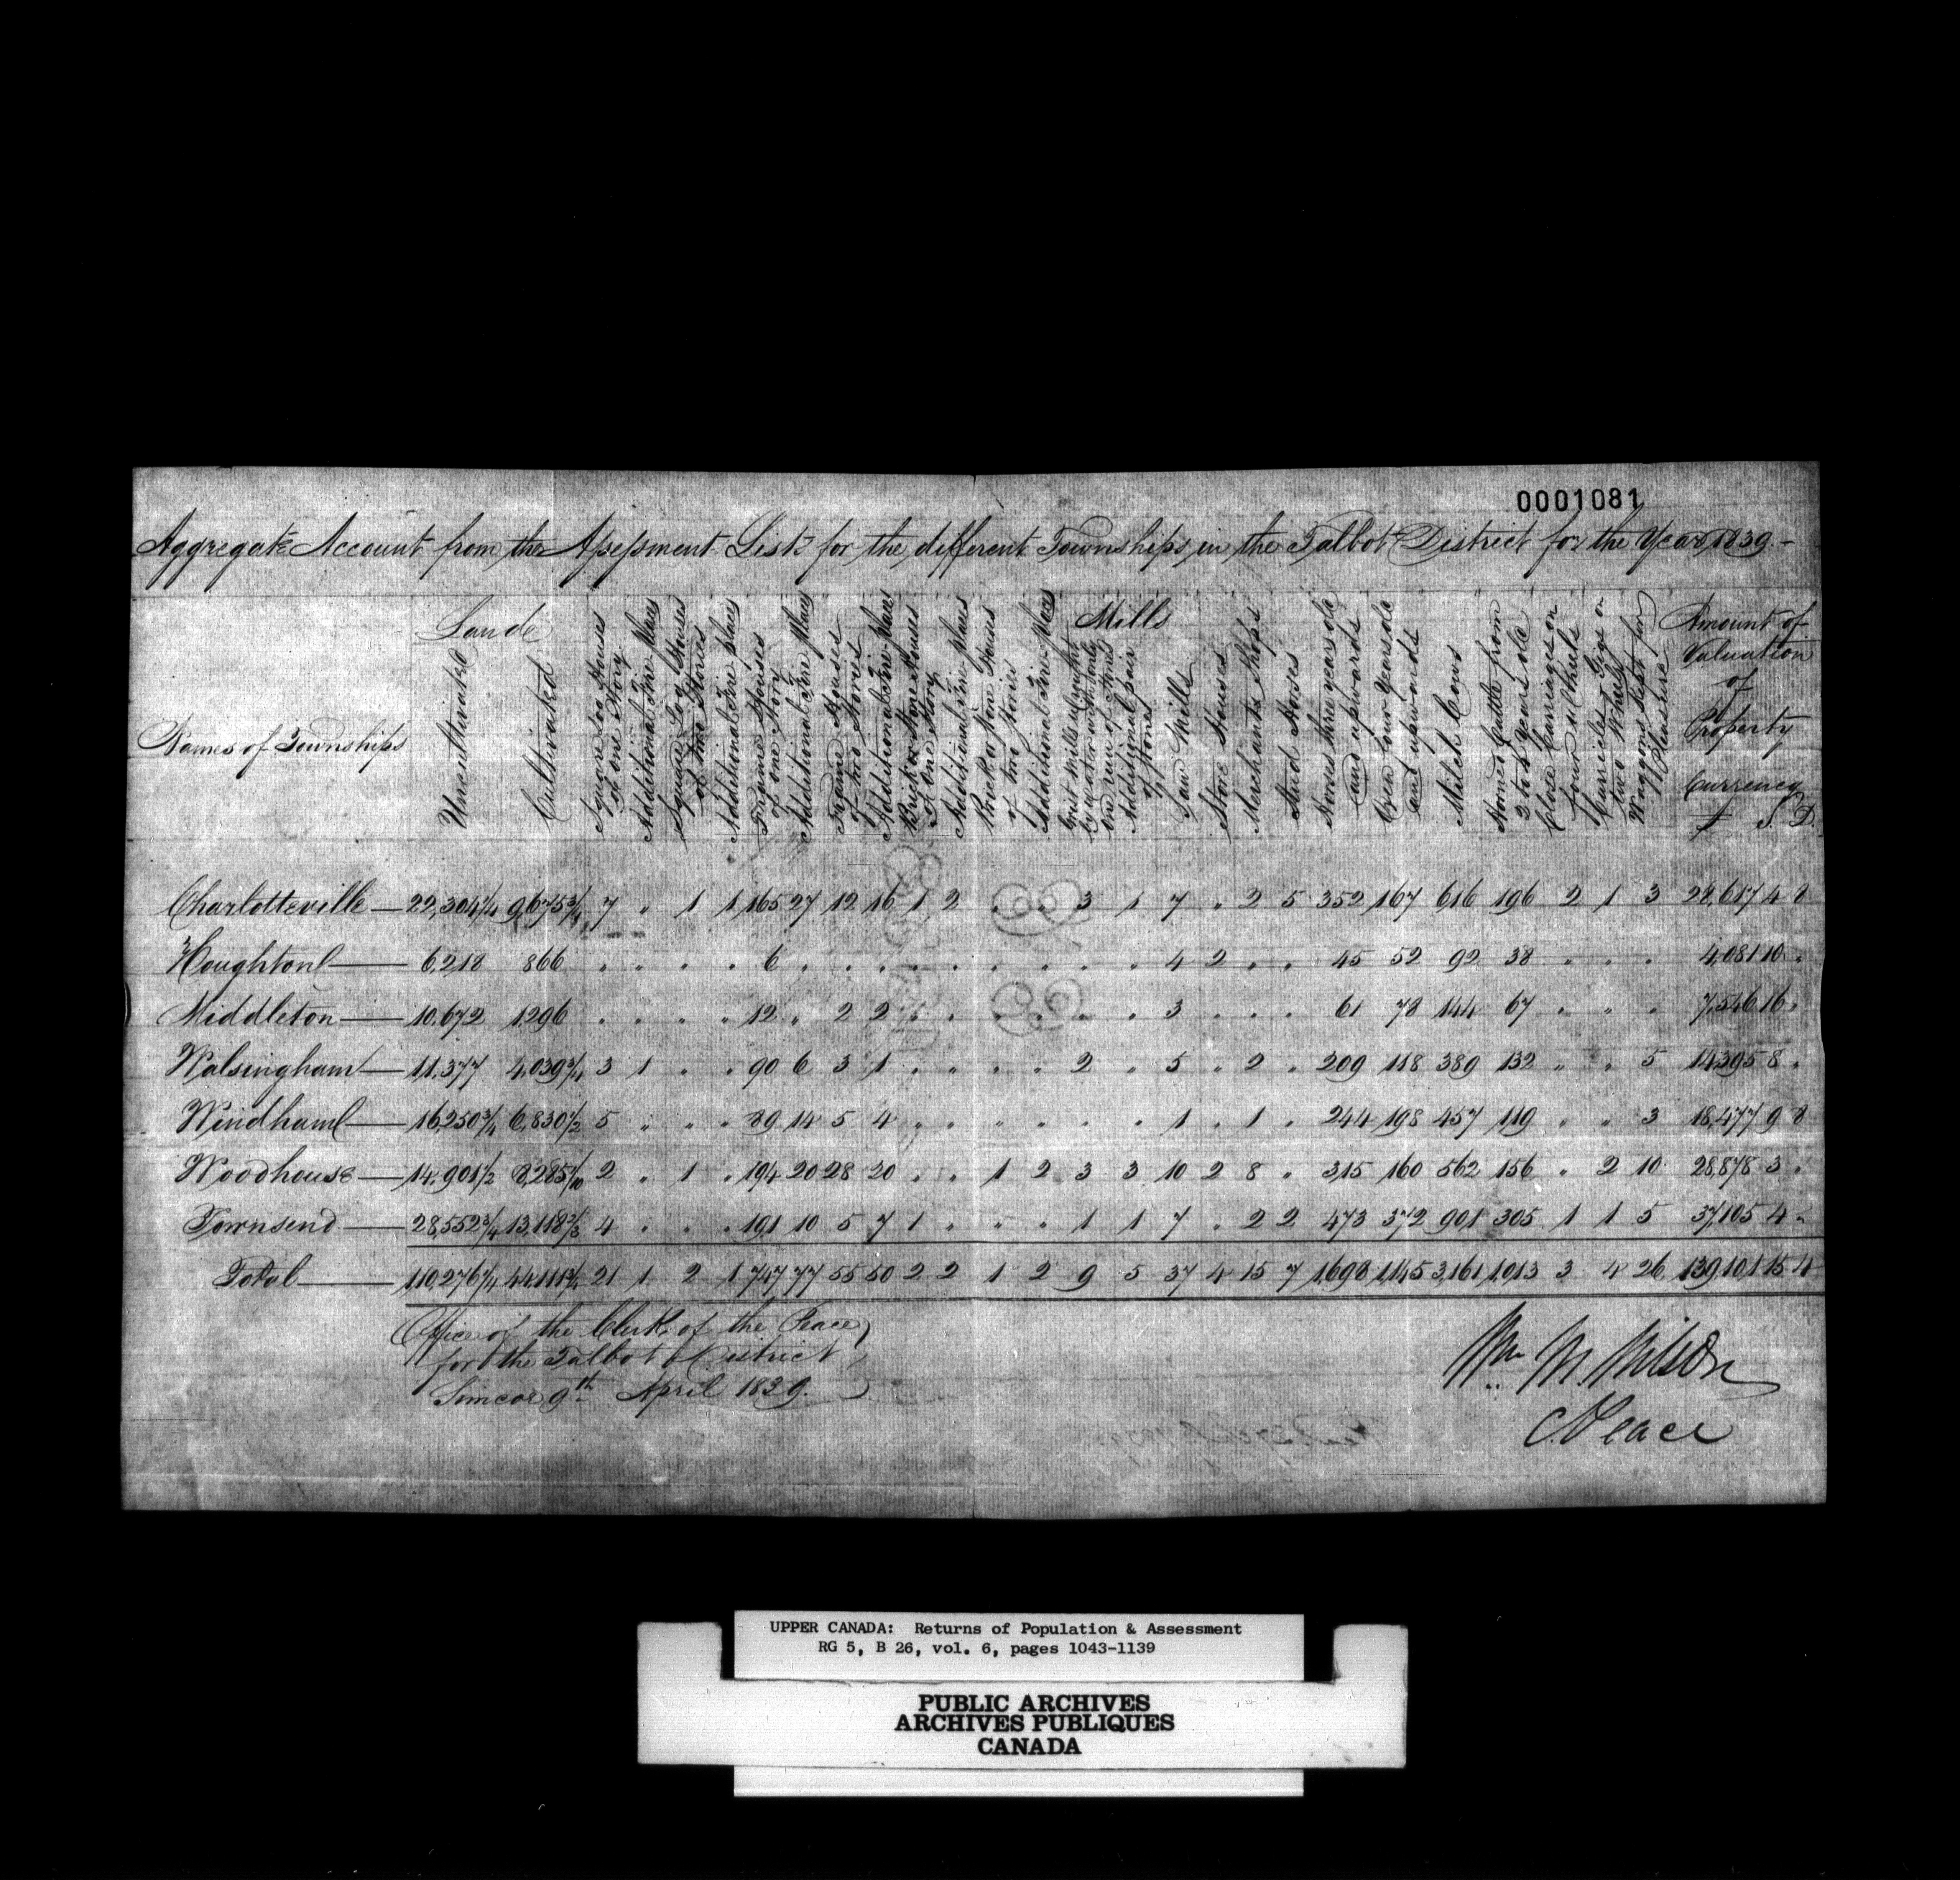 0001081
Aggregate Account from the Assessment Lists for the different Townships in the Talbot District for the Year 1839.-
Names of Townships
Lands
Uncultivated
Cultivated
Square Log Houses of one Story
Additional Fire Places
Square Log Houses of two Stories
Additional Fire places
Frame Houses of one Story
Additional Fire Places
Frame Houses of two Stories
Additional Fire-Places
Brick or Stone Houses of One Story
Additional Fire Places
Brick or Stone Houses of two Stories
Additional Fire-Places
Mills
Grist Mills wrought by water with only one run of Stones
Additional pair of Stones
Saw Mills
Store Houses
Merchants Shops
Stud Horses
Horses three years old and upwards
Oxen four years old and upwards
Milch Cows
Horned Cattle from 2 to 4 years old
Close Carriages on four wheels
Curricles Gigs or two Wheels
Waggons kept for Pleasure
Amount of Valuation of Property Currency
£ S. D.
Charlotteville — 22,304 1/4 9,675 3/4 7 „ 1 1 165 27 12 16 1 2 „ „ 3 1 7 „ 2 5 352 167 616 196 2 1 3 28,617 4 8
Houghton — 6,218 866 „ „ „ „ 6 „ „ „ „ „ „ „ „ „ 4 2 „ „ 45 52 92 38 „ „ „ 4,081 10 „
Middleton — 10,672 1,296 „ „ „ „ 12 „ 2 2 „ „ „ „ „ „ 3 „ „ „ 61 78 144 67 „ „ „ 7,546 16 „
Walsingham — 11,377 4,039 3/4 3 1 „ „ 90 6 3 1 „ „ „ „ 2 „ 5 „ 2 „ 209 118 389 132 „ „ 5 14,395 8 „
Windham — 16,250 3/4 6,830 1/2 5 „ „ „ 89 14 5 4 „ „ „ „ „ „ 1 „ 1 „ 244 198 457 119 „ „ 3 18,477 9 8
Woodhouse — 14,901 1/2 8,285 1/10 2 „ 1 „ 194 20 28 20 „ „ 1 2 3 3 10 2 8 „ 315 160 562 156 „ 2 10 28,878 3 „
Townsend — 28,552 3/4 13,118 2/3 4 „ „ „ 191 10 5 7 1 „ „ „ 1 1 7 „ 2 2 473 372 901 305 1 1 5 37,105 4 „
Total — 110,276 1/4 44,111 3/4 21 1 2 1 747 77 55 50 2 2 1 2 9 5 37 4 15 7 1,698 1,145 3,161 1,013 3 4 26 139,101 15 4
Office of the Clerk of the Peace
for the Talbot District
Simcoe 9th April 1839.
Wm M. Wilson
C. Peace
UPPER CANADA: Returns of Population & Assessment
RG 5, B 26, vol. 6, pages 1043-1139
PUBLIC ARCHIVES
ARCHIVES PUBLIQUES
CANADA